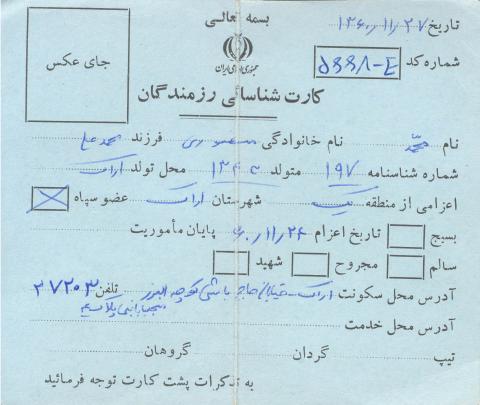 بسمه تعالی
تاریخ ۱۳۶۰/۱۱/۲۷
جمهوری اسلامی ایران
جای عکس
شماره کد
کارت شناسائی رزمندگان
نام محمد نام خانوادگی منصوری فرزند محمدعلی
شماره شناسنامه ۱۹۷ متولد محل تولد اراک
اعزامی از منطقه یک شهرستان اراک عضو سپاه
بسیج تاریخ اعزام ۶۰/۱۱/۲۴ پایان مأموریت
سالم مجروح شهید
آدرس محل سکونت اراک - خیابان حاج باشی کوچه البرز تلفن ۲۷۲۰۳
آدرس محل خدمت
تیپ گردان گروهان
به تذکرات پشت کارت توجه فرمائید